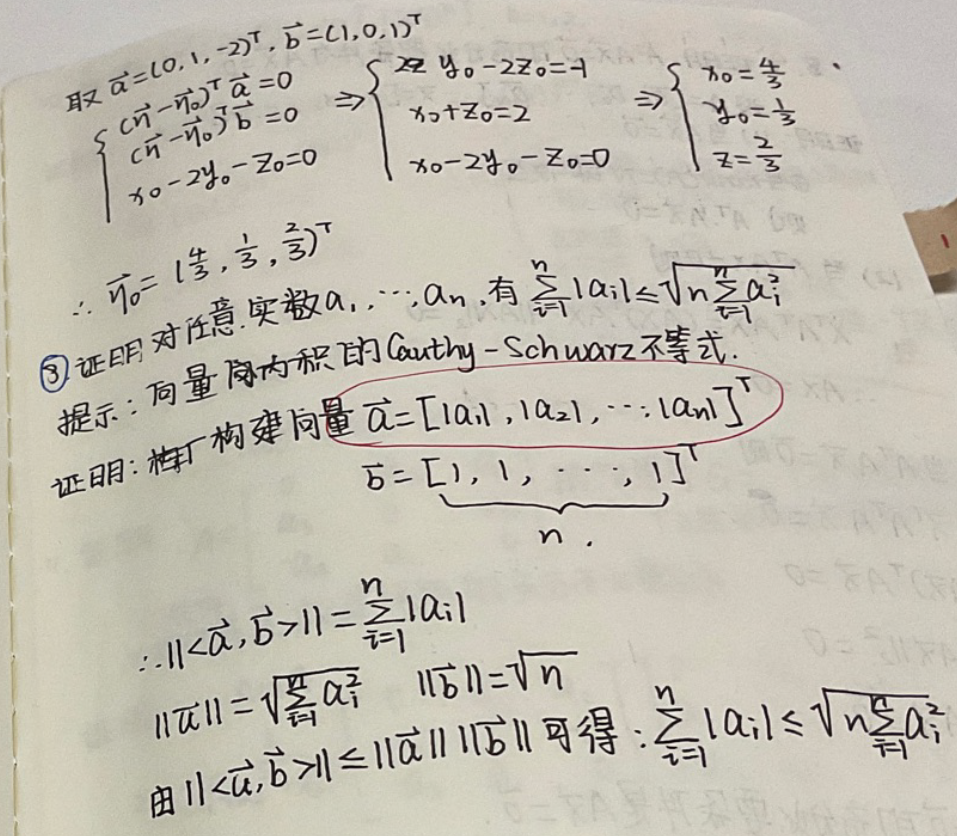 取 a⃗=(0, 1, -2)ᵀ, b⃗=(1, 0, 1)ᵀ
{ (η⃗-η⃗₀)ᵀa⃗=0 ⇒ { y₀-2z₀=-1 ⇒ { x₀=4/3
(η⃗-η⃗₀)ᵀb⃗=0 x₀+z₀=2 y₀=1/3
x₀-2y₀-z₀=0 x₀-2y₀-z₀=0 z=2/3
∴ η⃗₀=(4/3, 1/3, 2/3)ᵀ
⑧ 证明对任意实数a₁, ⋯, aₙ, 有 ∑ᵢ₌₁ⁿ|aᵢ|≤√(n∑ᵢ₌₁ⁿaᵢ²)
提示: 向量内积的Cauthy-Schwarz不等式.
证明: 构建向量 a⃗=[|a₁|, |a₂|, ⋯, |aₙ|]ᵀ
b⃗=[1, 1, ⋯, 1]ᵀ
n.
∴ ||<a⃗, b⃗>||=∑ᵢ₌₁ⁿ|aᵢ|
||a⃗||=√(∑ᵢ₌₁ⁿaᵢ²) ||b⃗||=√n
由||<a⃗, b⃗>||≤||a⃗|| ||b⃗|| 可得: ∑ᵢ₌₁ⁿ|aᵢ|≤√(n∑ᵢ₌₁ⁿaᵢ²)